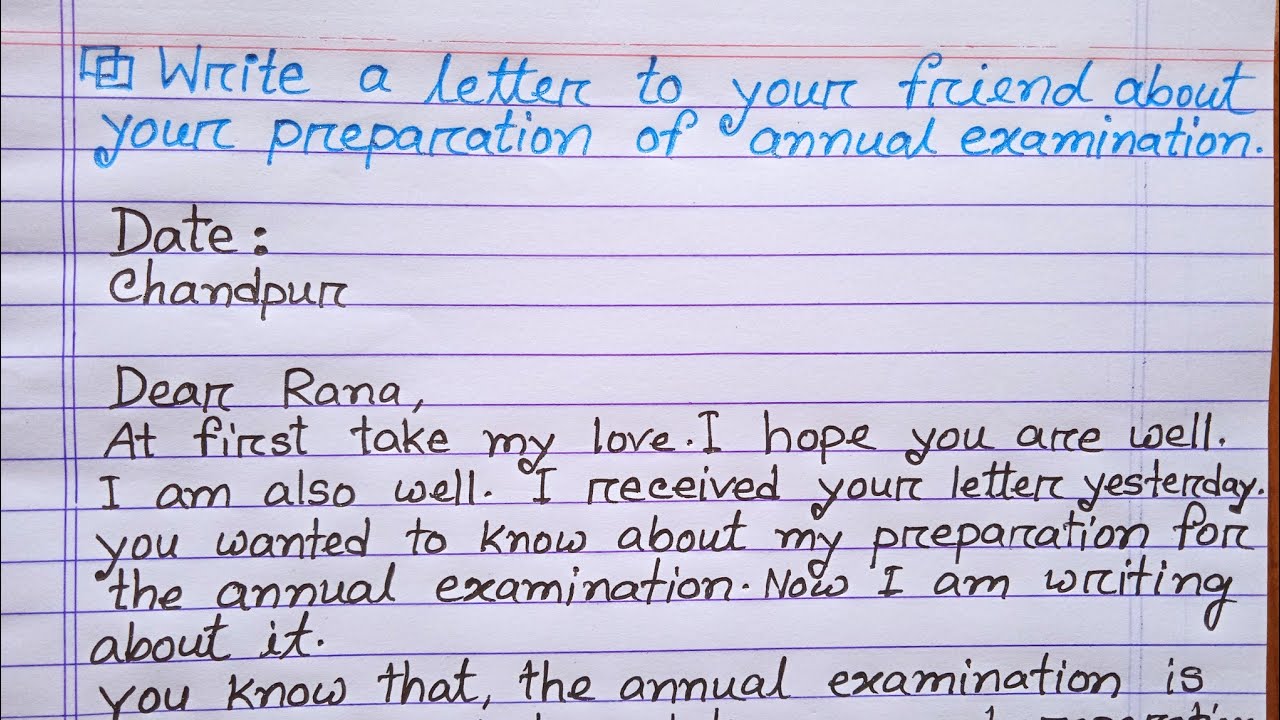 Write a letter to your friend about
your preparation of annual examination.
Date:
Chandpur
Dear Rana,
At first take my love. I hope you are well.
I am also well. I received your letter yesterday.
you wanted to know about my preparation for
the annual examination. Now I am writing
about it.
you know that, the annual examination is